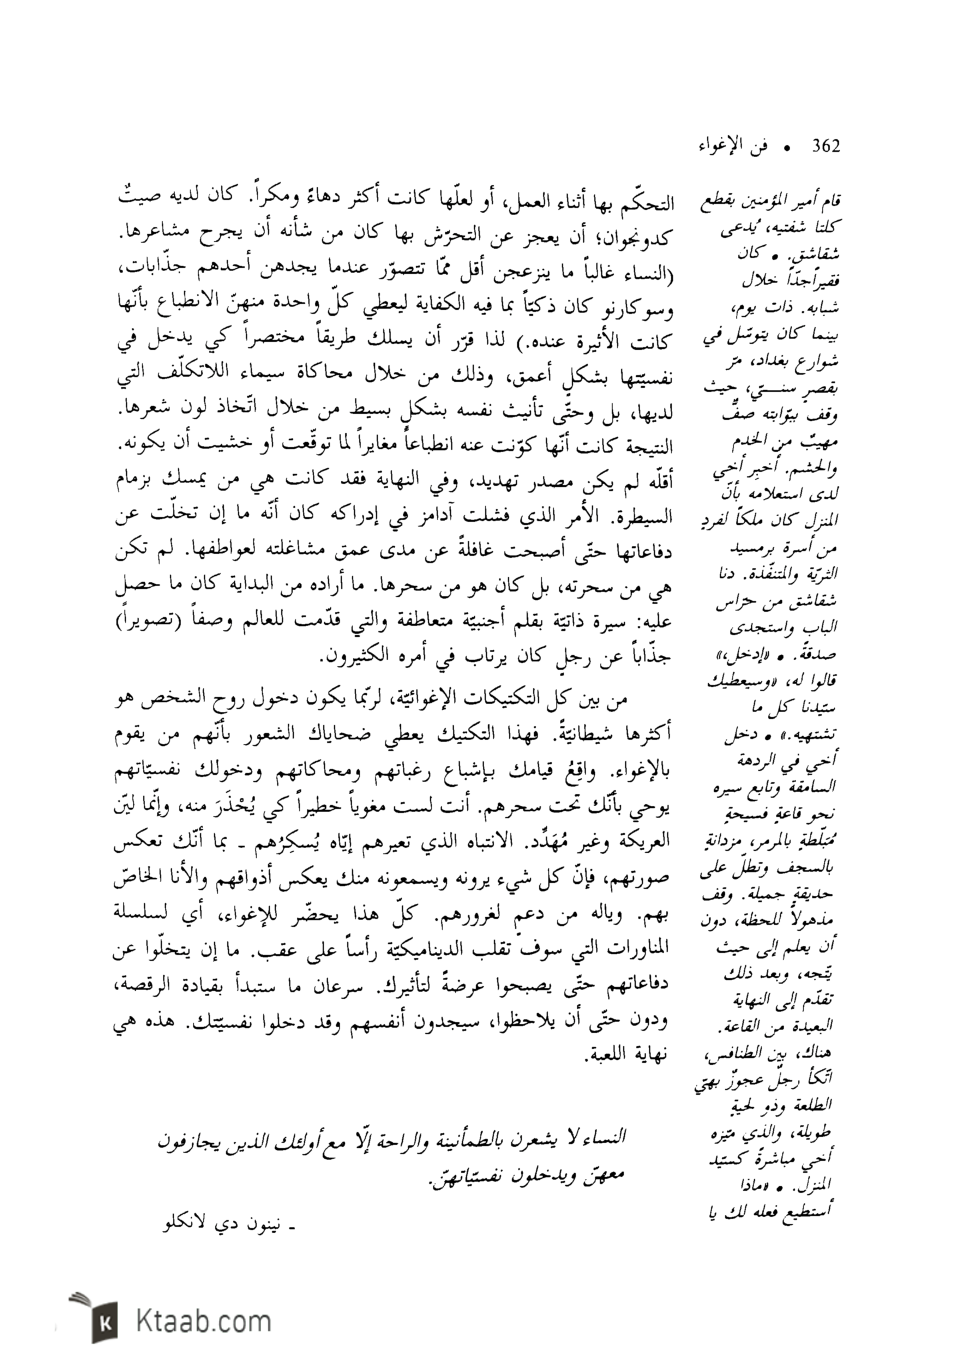 362 • فن الإغواء
التحكّم بها أثناء العمل، أو لعلّها كانت أكثر دهاءً ومكراً. كان لديه صيتٌ
كدونجوان؛ أن يعجز عن التحرّش بها كان من شأنه أن يجرح مشاعرها.
(النساء غالباً ما ينزعجن أقل ممّا تتصوّر عندما يجدهن أحدهم جذّابات،
وسوكارنو كان ذكيّاً بما فيه الكفاية ليعطي كلّ واحدة منهنّ الانطباع بأنّها
كانت الأثيرة عنده.) لذا قرّر أن يسلك طريقاً مختصراً كي يدخل في
نفسيّتها بشكلٍ أعمق، وذلك من خلال محاكاة سيماء اللاتكلّف التي
لديها، بل وحتّى تأنيث نفسه بشكلٍ بسيط من خلال اتّخاذ لون شعرها.
النتيجة كانت أنّها كوّنت عنه انطباعاً مغايراً لما توقّعت أو خشيت أن يكونه.
أقلّه لم يكن مصدر تهديد، وفي النهاية فقد كانت هي من يمسك بزمام
السيطرة. الأمر الذي فشلت آدامز في إدراكه كان أنّه ما إن تخلّت عن
دفاعاتها حتّى أصبحت غافلةً عن مدى عمق مشاغلته لعواطفها. لم تكن
هي من سحرته، بل كان هو من سحرها. ما أراده من البداية كان ما حصل
عليه: سيرة ذاتيّة بقلم أجنبيّة متعاطفة والتي قدّمت للعالم وصفاً (تصويراً)
جذّاباً عن رجلٍ كان يرتاب في أمره الكثيرون.
من بين كل التكتيكات الإغوائيّة، لربّما يكون دخول روح الشخص هو
أكثرها شيطانيّةً. فهذا التكتيك يعطي ضحاياك الشعور بأنّهم من يقوم
بالإغواء. واقِعُ قيامك بإشباع رغباتهم ومحاكاتهم ودخولك نفسيّاتهم
يوحي بأنّك تحت سحرهم. أنت لست مغوياً خطيراً كي يُحْذَرَ منه، وإنّما ليّن
العريكة وغير مُهَدِّد. الانتباه الذي تعيرهم إيّاه يُسكِرُهم ـ بما أنّك تعكس
صورتهم، فإنّ كل شيء يرونه ويسمعونه منك يعكس أذواقهم والأنا الخاصّ
بهم. وياله من دعم لغرورهم. كلّ هذا يحضّر للإغواء، أي لسلسلة
المناورات التي سوف تقلب الديناميكيّة رأساً على عقب. ما إن يتخلّوا عن
دفاعاتهم حتّى يصبحوا عرضةً لتأثيرك. سرعان ما ستبدأ بقيادة الرقصة،
ودون حتّى أن يلاحظوا، سيجدون أنفسهم وقد دخلوا نفسيّتك. هذه هي
نهاية اللعبة.
النساء لا يشعرن بالطمأنينة والراحة إلّا مع أولئك الذين يجازفون
معهنّ ويدخلون نفسيّاتهنّ.
ـ نينون دي لانكلو
قام أمير المؤمنين بقطع
كلتا شفتيه، يُدعى
شقاشق. • كان
فقيراً جدّاً خلال
شبابه. ذات يوم،
بينما كان يتوسّل في
شوارع بغداد، مرّ
بقصرٍ سنـيّ، حيث
وقف ببوّابته صفٌّ
مهيبٌ من الخدم
والحشم. أُخبِر أخي
لدى استعلامه بأنّ
المنزل كان ملكاً لفردٍ
من أسرة برمسيد
الثريّة والمتنفّذة. دنا
شقاشق من حرّاس
الباب واستجدى
صدقةً. • «إدخل،»
قالوا له، «وسيعطيك
سيّدنا كل ما
تشتهيه.» • دخل
أخي في الردهة
السامقة وتابع سيره
نحو قاعةٍ فسيحةٍ
مُبَلّطةٍ بالمرمر، مزدانةٍ
بالسجف وتطلّ على
حديقةٍ جميلة. وقف
مذهولاً للحظة، دون
أن يعلم إلى حيث
يتّجه، وبعد ذلك
تقدّم إلى النهاية
البعيدة من القاعة.
هناك، بين الطنافس،
اتّكأ رجلٌ عجوزٌ بهيّ
الطلعة وذو لحيةٍ
طويلة، والذي ميّزه
أخي مباشرةً كسيّد
المنزل. • «ماذا
أستطيع فعله لك يا
Ktaab.com